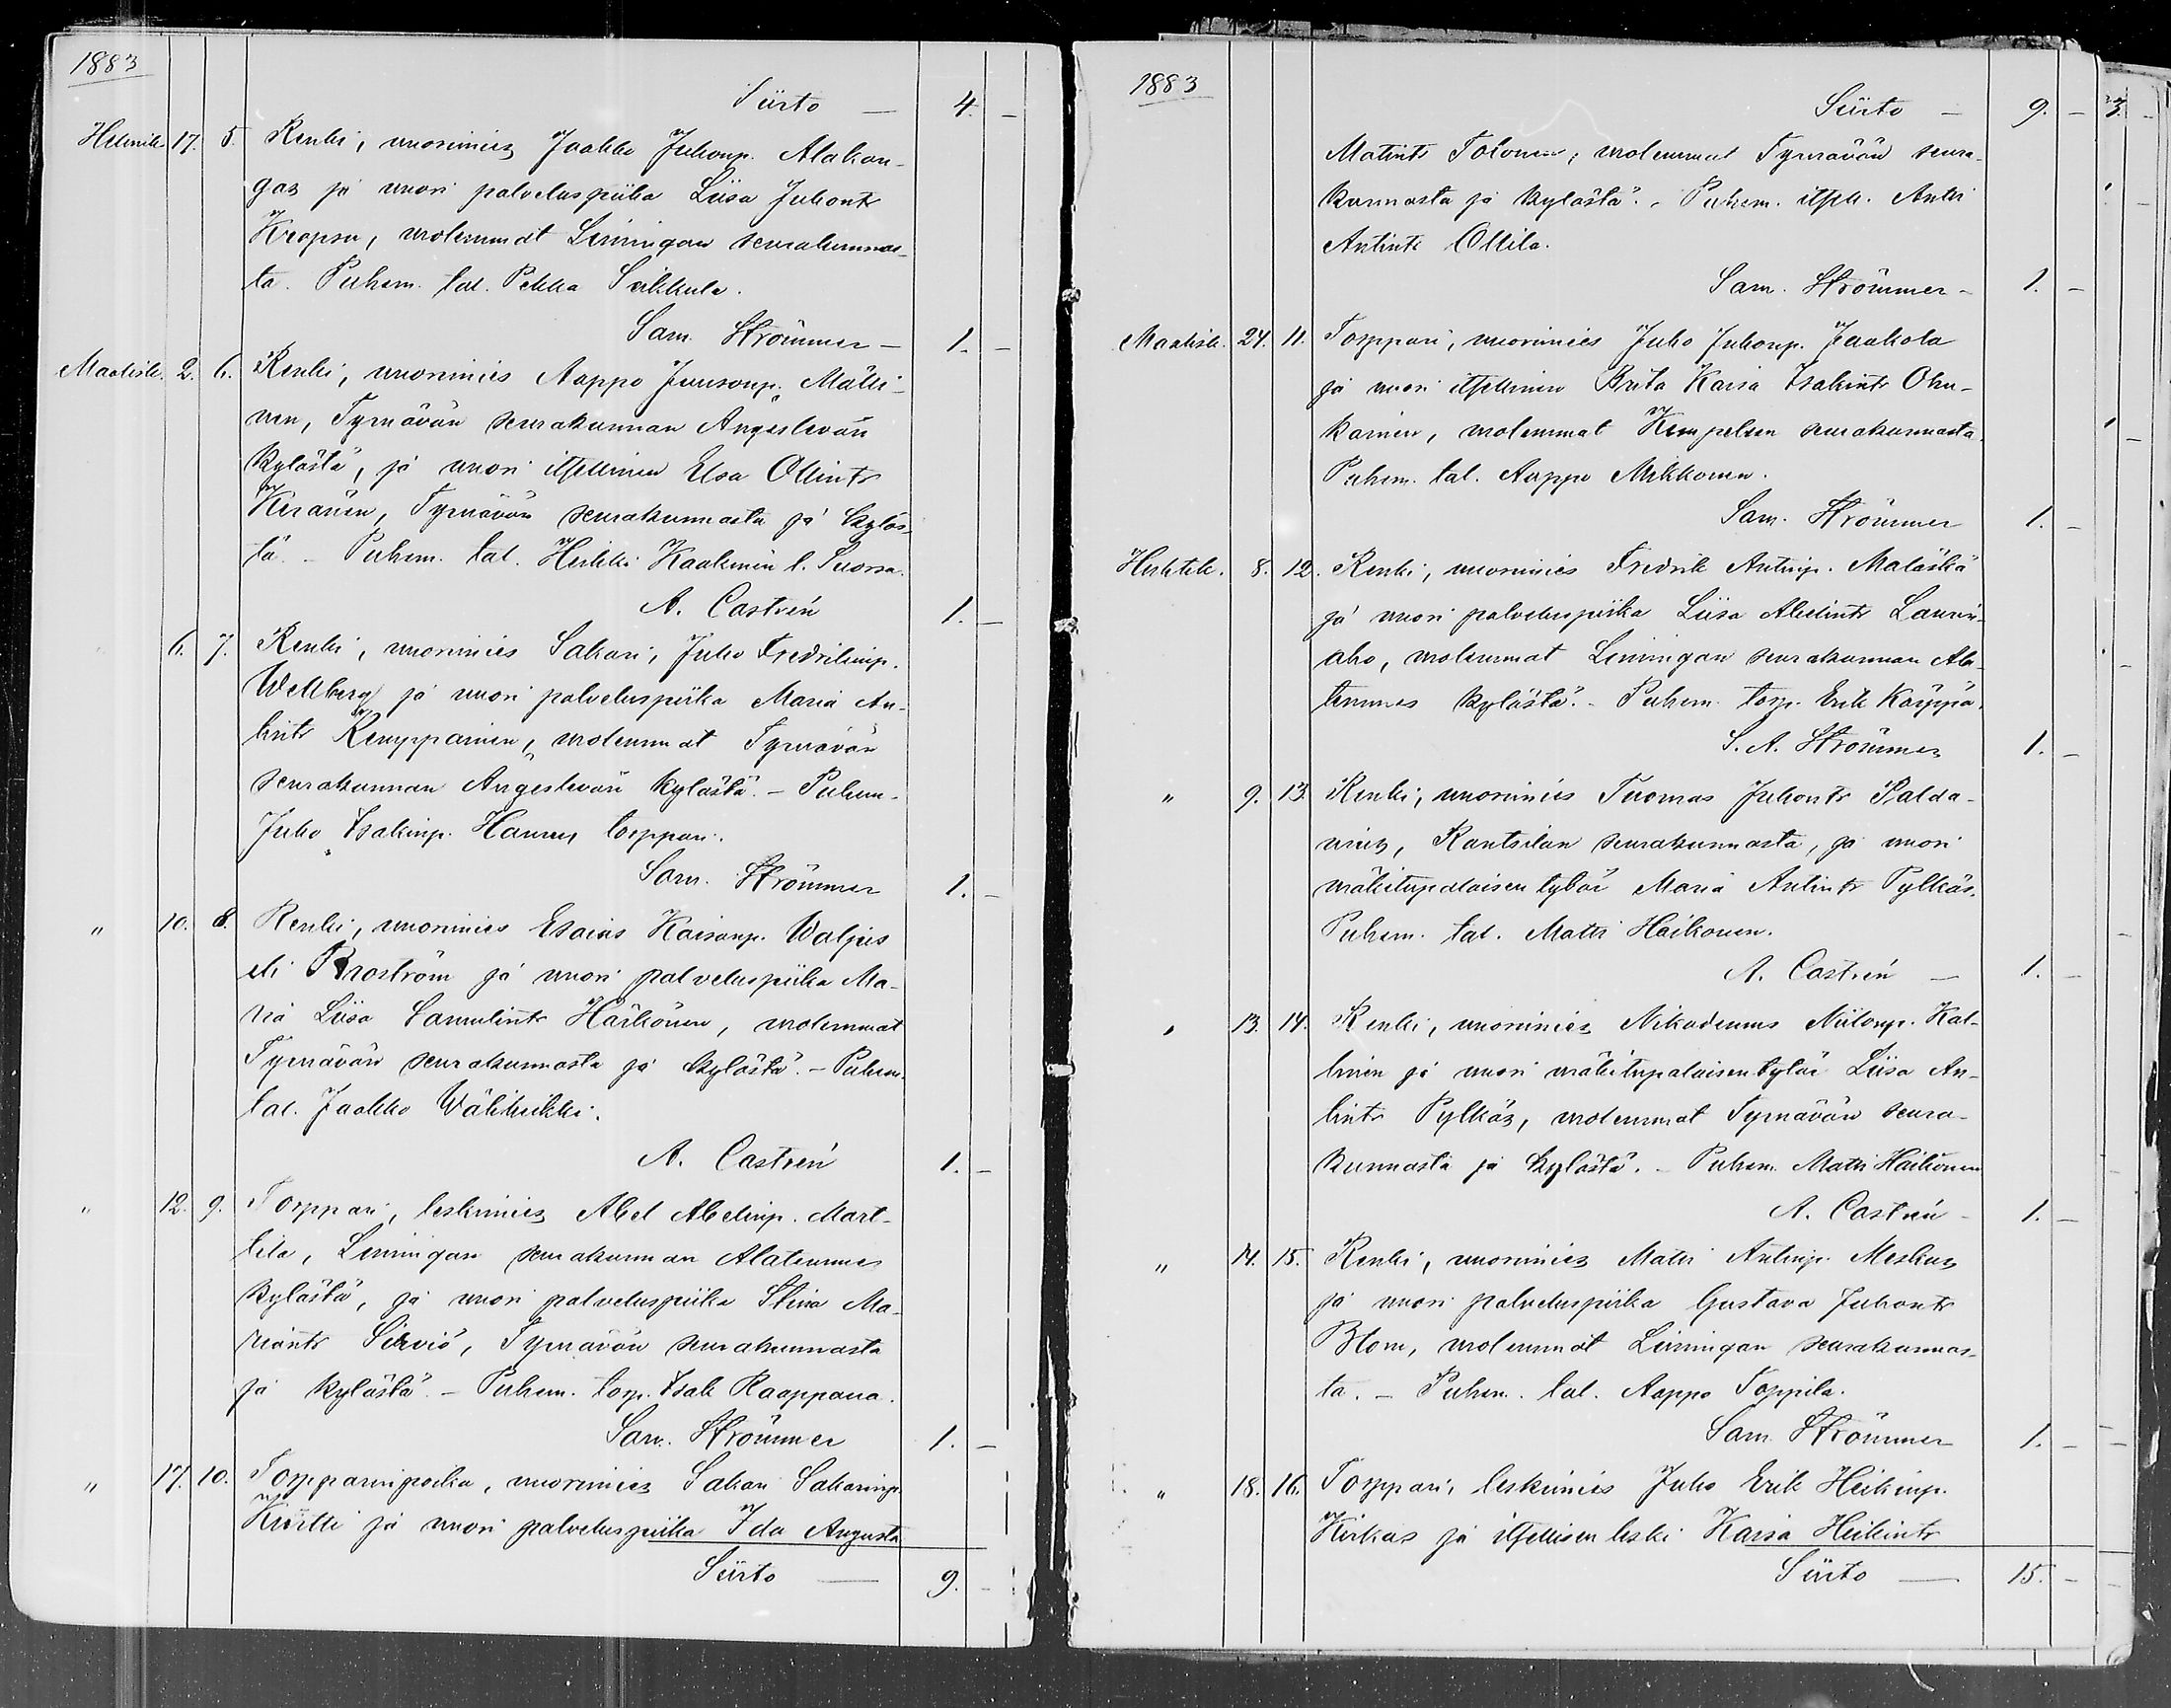 1883
Siirto — 4. —
Helmik. 17. 5. Renki, nuorimies Jaakko Juhonp. Alakan-
gas ja nuori palveluspiika Liisa Juhontr
Kropsu, molemmat Limingan seurakunnas-
ta. Puhem. tal. Pekka Seikkula.
Sam. Strömmer — 1. —
Maalisk. 2. 6. Renki, nuorimies Aappo Juusonp. Mätti-
nen, Tyrnävän seurakunnan Ängeslevän
kylästä, ja nuori itsellinen Elsa Ollintr
Keränen, Tyrnävän seurakunnasta ja kyläs-
tä. – Puhem. tal. Heikki Kaakinen l. Suorsa.
A. Castrén 1. —
6. 7. Renki, nuorimies Sakari, Juho Fredrikinp.
Wellberg ja nuori palveluspiika Maria An-
tintr Kemppainen, molemmat Tyrnävän
seurakunnan Ängeslevän kylästä. – Puhem.
Juho Isakinp. Hannus torppari.
Sam. Strömmer 1. —
" 10. 8. Renki, nuorimies Esaias Kaisanp. Waljus
eli Broström ja nuori palveluspiika Ma-
ria Liisa Samulintr Härkönen, molemmat
Tyrnävän seurakunnasta ja kylästä. – Puhem.
tal. Jaakko Wälikeikki.
A. Castrén 1. —
" 12. 9. Torppari, leskimies Abel Abelinp. Mart-
tila, Limingan seurakunnan Alatemmes
kylästä, ja nuori palveluspiika Stina Ma-
riantr Sirviö, Tyrnävän seurakunnasta
ja kylästä. – Puhem. torp. Isak Raappana.
Sam. Strömmer 1. —
" 17. 10. Torpparinpoika, nuorimies Sakari Sakarinp.
Körtti ja nuori palveluspiika Ida Augusta
Siirto — 9. —
1883
Siirto — 9. —
Matintr Tolonen, molemmat Tyrnävän seura-
kunnasta ja kylästä. – Puhem. itsell. Antti
Antintr Ollila.
Sam. Strömmer – 1. —
Maalisk. 24. 11. Torppari, nuorimies Juho Juhonp. Jaakola
ja nuori itsellinen Brita Kaisa Isakintr Ohu-
kainen, molemmat Kempeleen seurakunnasta.
Puhem. tal. Aappo Mikkonen.
Sam. Strömmer 1. —
Huhtik. 8. 12. Renki, nuorimies Fredrik Antinp. Maläskä
ja nuori palveluspiika Liisa Abelintr Laurin-
aho, molemmat Limingan seurakunnan Ala-
temmes kylästä. – Puhem. torp. Erik Karppa.
S. A. Strömmer 1. —
" 9. 13. Renki, nuorimies Tuomas Juhontr Palda-
nius, Rantsilan seurakunnasta, ja nuori
mäkitupalaisen tytär Maria Antintr Pylkäs.
Puhem. tal. Matti Haikonen.
A. Castrén — 1. —
" 13. 14. Renki, nuorimies Nikodemus Niilonp. Kal-
linen ja nuori mäkitupalaisen tytär Liisa An-
tintr Pylkäs, molemmat Tyrnävän seura-
kunnasta ja kylästä. – Puhem. Matti Haikonen
A. Castrén – 1. —
" 14. 15. Renki, nuorimies Matti Antinp. Meskus
ja nuori palveluspiika Gustava Juhontr
Blom, molemmat Limingan seurakunnas-
ta. – Puhem. tal. Aappo Toppila.
Sam. Strömmer 1. —
" 18. 16. Torppari, leskimies Juho Erik Heikinp.
Kirkas ja itsellisen leski Kaisa Heikintr
Siirto — 15. —